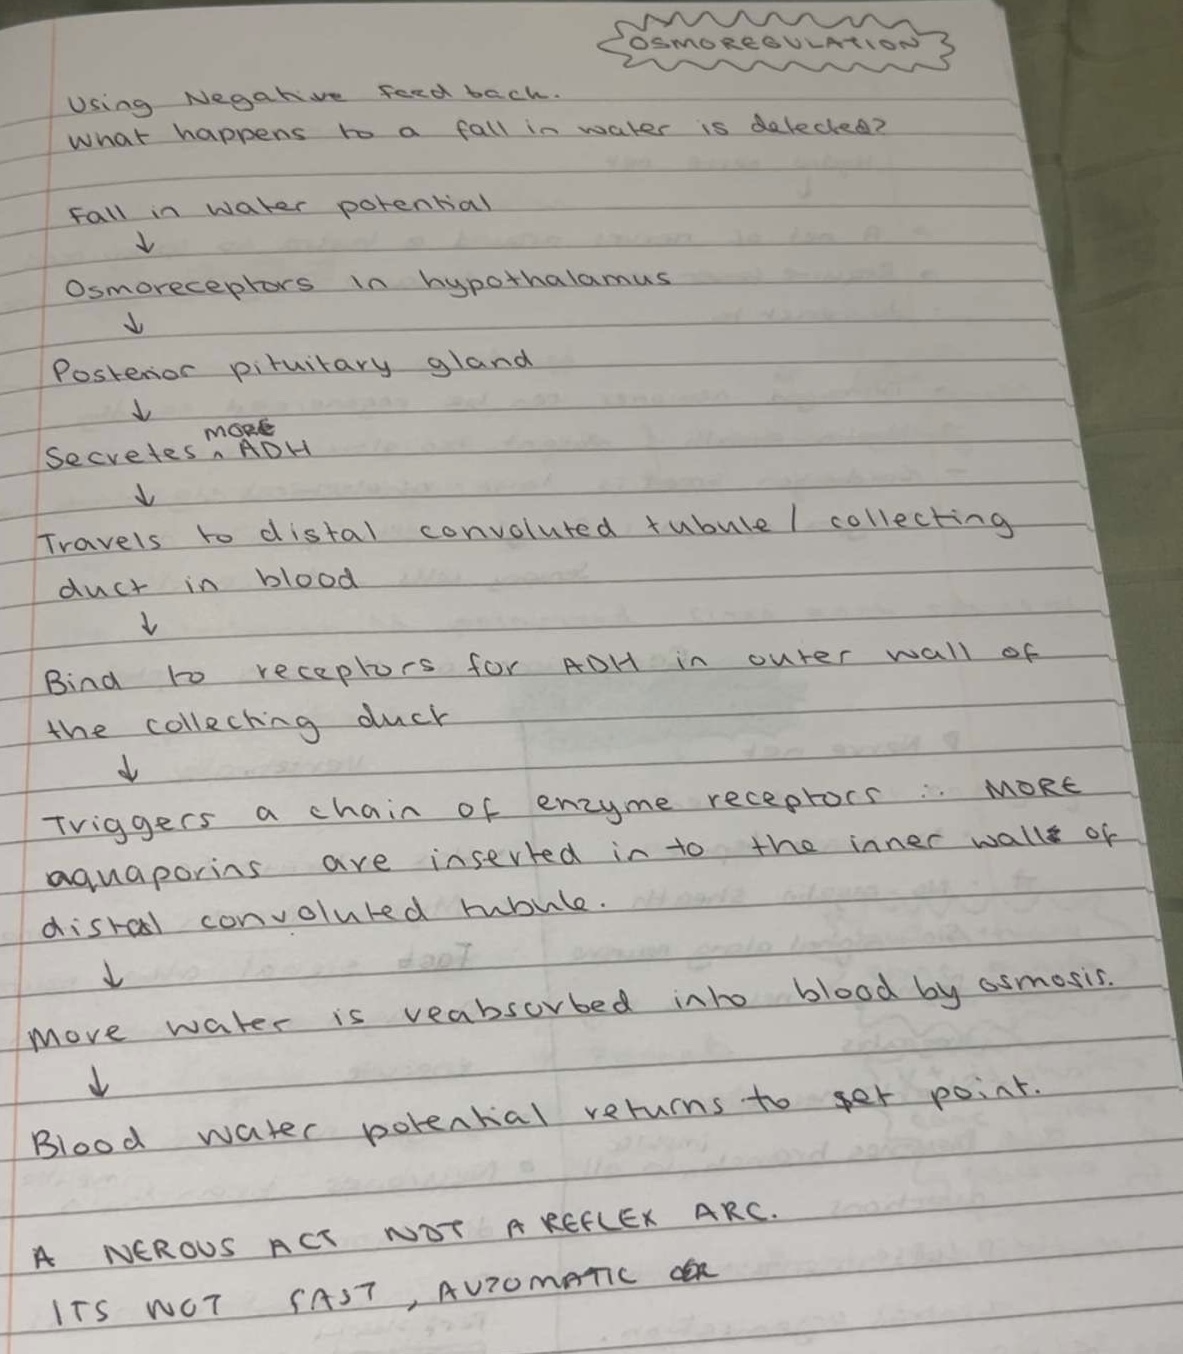 OSMOREGULATION
Using Negative feed back.
What happens to a fall in water is detected?
Fall in water potential
↓
Osmoreceptors in hypothalamus
↓
Posterior pituitary gland
↓
MORE
Secretes ^ ADH
↓
Travels to distal convoluted tubule / collecting
duct in blood
↓
Bind to receptors for ADH in outer wall of
the collecting duct
↓
Triggers a chain of enzyme receptors ∴ MORE
aquaporins are inserted in to the inner walls of
distal convoluted tubule.
↓
More water is reabsorbed into blood by osmosis.
↓
Blood water potential returns to set point.
A NEROUS ACT NOT A REFLEX ARC.
ITS NOT FAST, AUTOMATIC OR